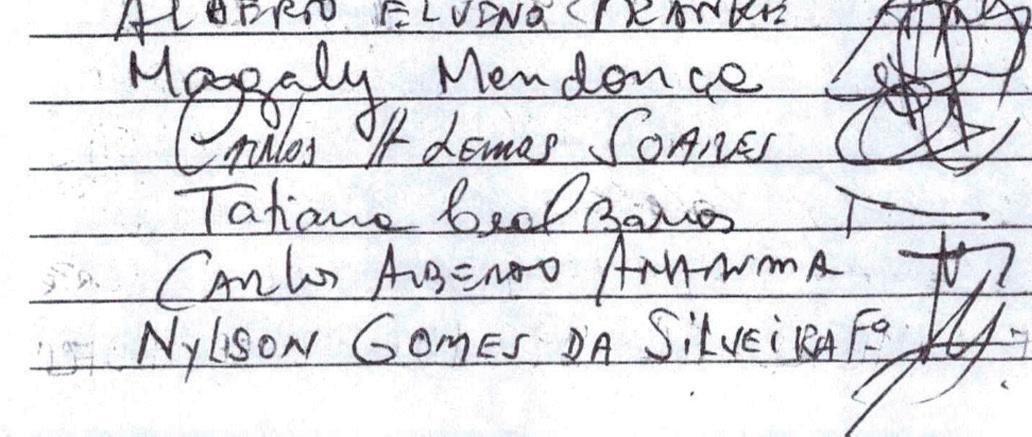 ALBERTO ELVINO FRANKE
Magaly Mendonça
Carlos H Lemos SOARES
Tatiana Leal Barros
CARLOS ALBERTO
NYLISON GOMES DA SiLVEiRA Fº